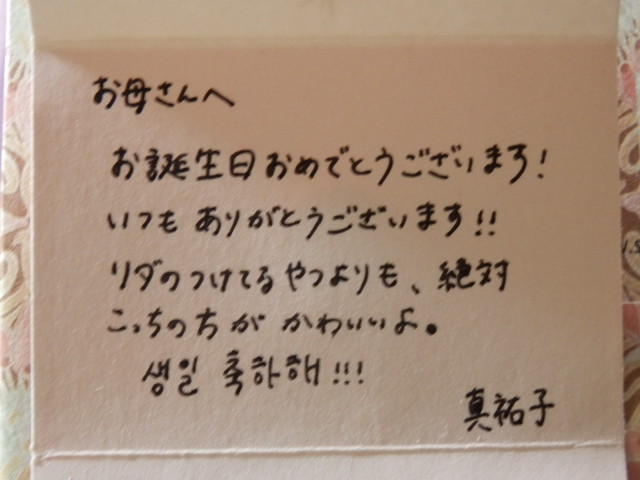 お母さんへ
お誕生日おめでとうございます!
いつもありがとうございます!!
リダのつけてるやつよりも、絶対
こっちの方がかわいいよ。
생일 축하해!!!
真祐子